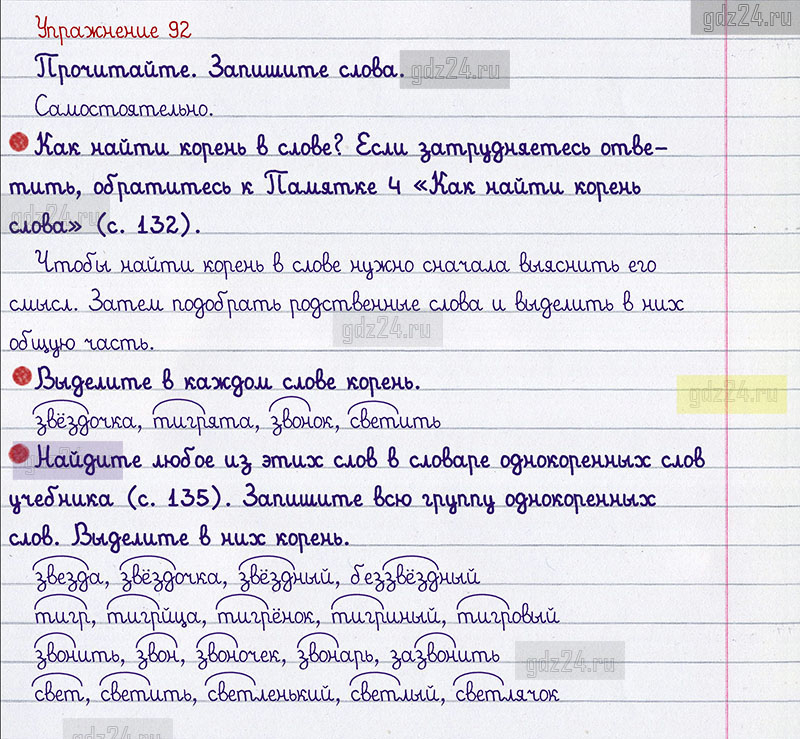 gdz24.ru
Упражнение 92
Прочитайте. Запишите слова.
gdz24.ru
Самостоятельно.
Как найти корень в слове? Если затрудняетесь отве-
тить, обратитесь к Памятке 4 «Как найти корень
gdz24.ru
слова» (с. 132).
Чтобы найти корень в слове нужно сначала выяснить его
смысл. Затем подобрать родственные слова и выделить в них
gdz24.ru
общую часть.
Выделите в каждом слове корень.
gdz24.ru
звёздочка, тигрята, звонок, светить
Найдите любое из этих слов в словаре однокоренных слов
учебника (с. 135). Запишите всю группу однокоренных
слов. Выделите в них корень.
звезда, звёздочка, звёздный, беззвёздный
тигр, тигрица, тигрёнок, тигриный, тигровый
звонить, звон, звоночек, звонарь, зазвонить
gdz24.ru
свет, светить, светленький, светлый, светлячок
gdz24.ru